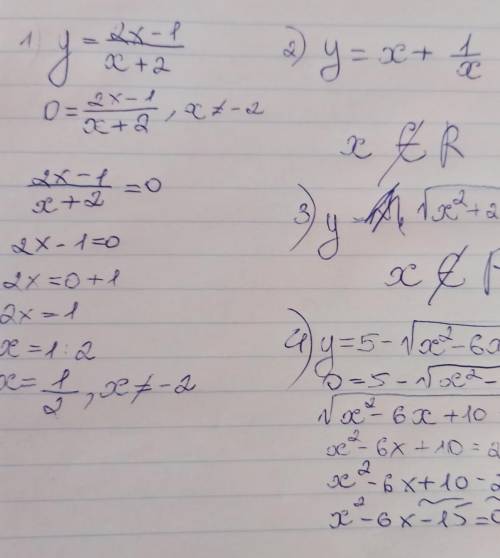 1) y = (2x-1)/(x+2)
0 = (2x-1)/(x+2), x ≠ -2
(2x-1)/(x+2) = 0
2x-1=0
2x=0+1
2x=1
x=1:2
x=1/2, x ≠ -2
2) y = x + 1/x
x ∉ R
3) y = √x²+2
x ∉
4) y=5-√x²-6x
0=5-√x²-
√x²-6x+10
x²-6x+10=2
x²-6x+10-2
x²-6x-15=0